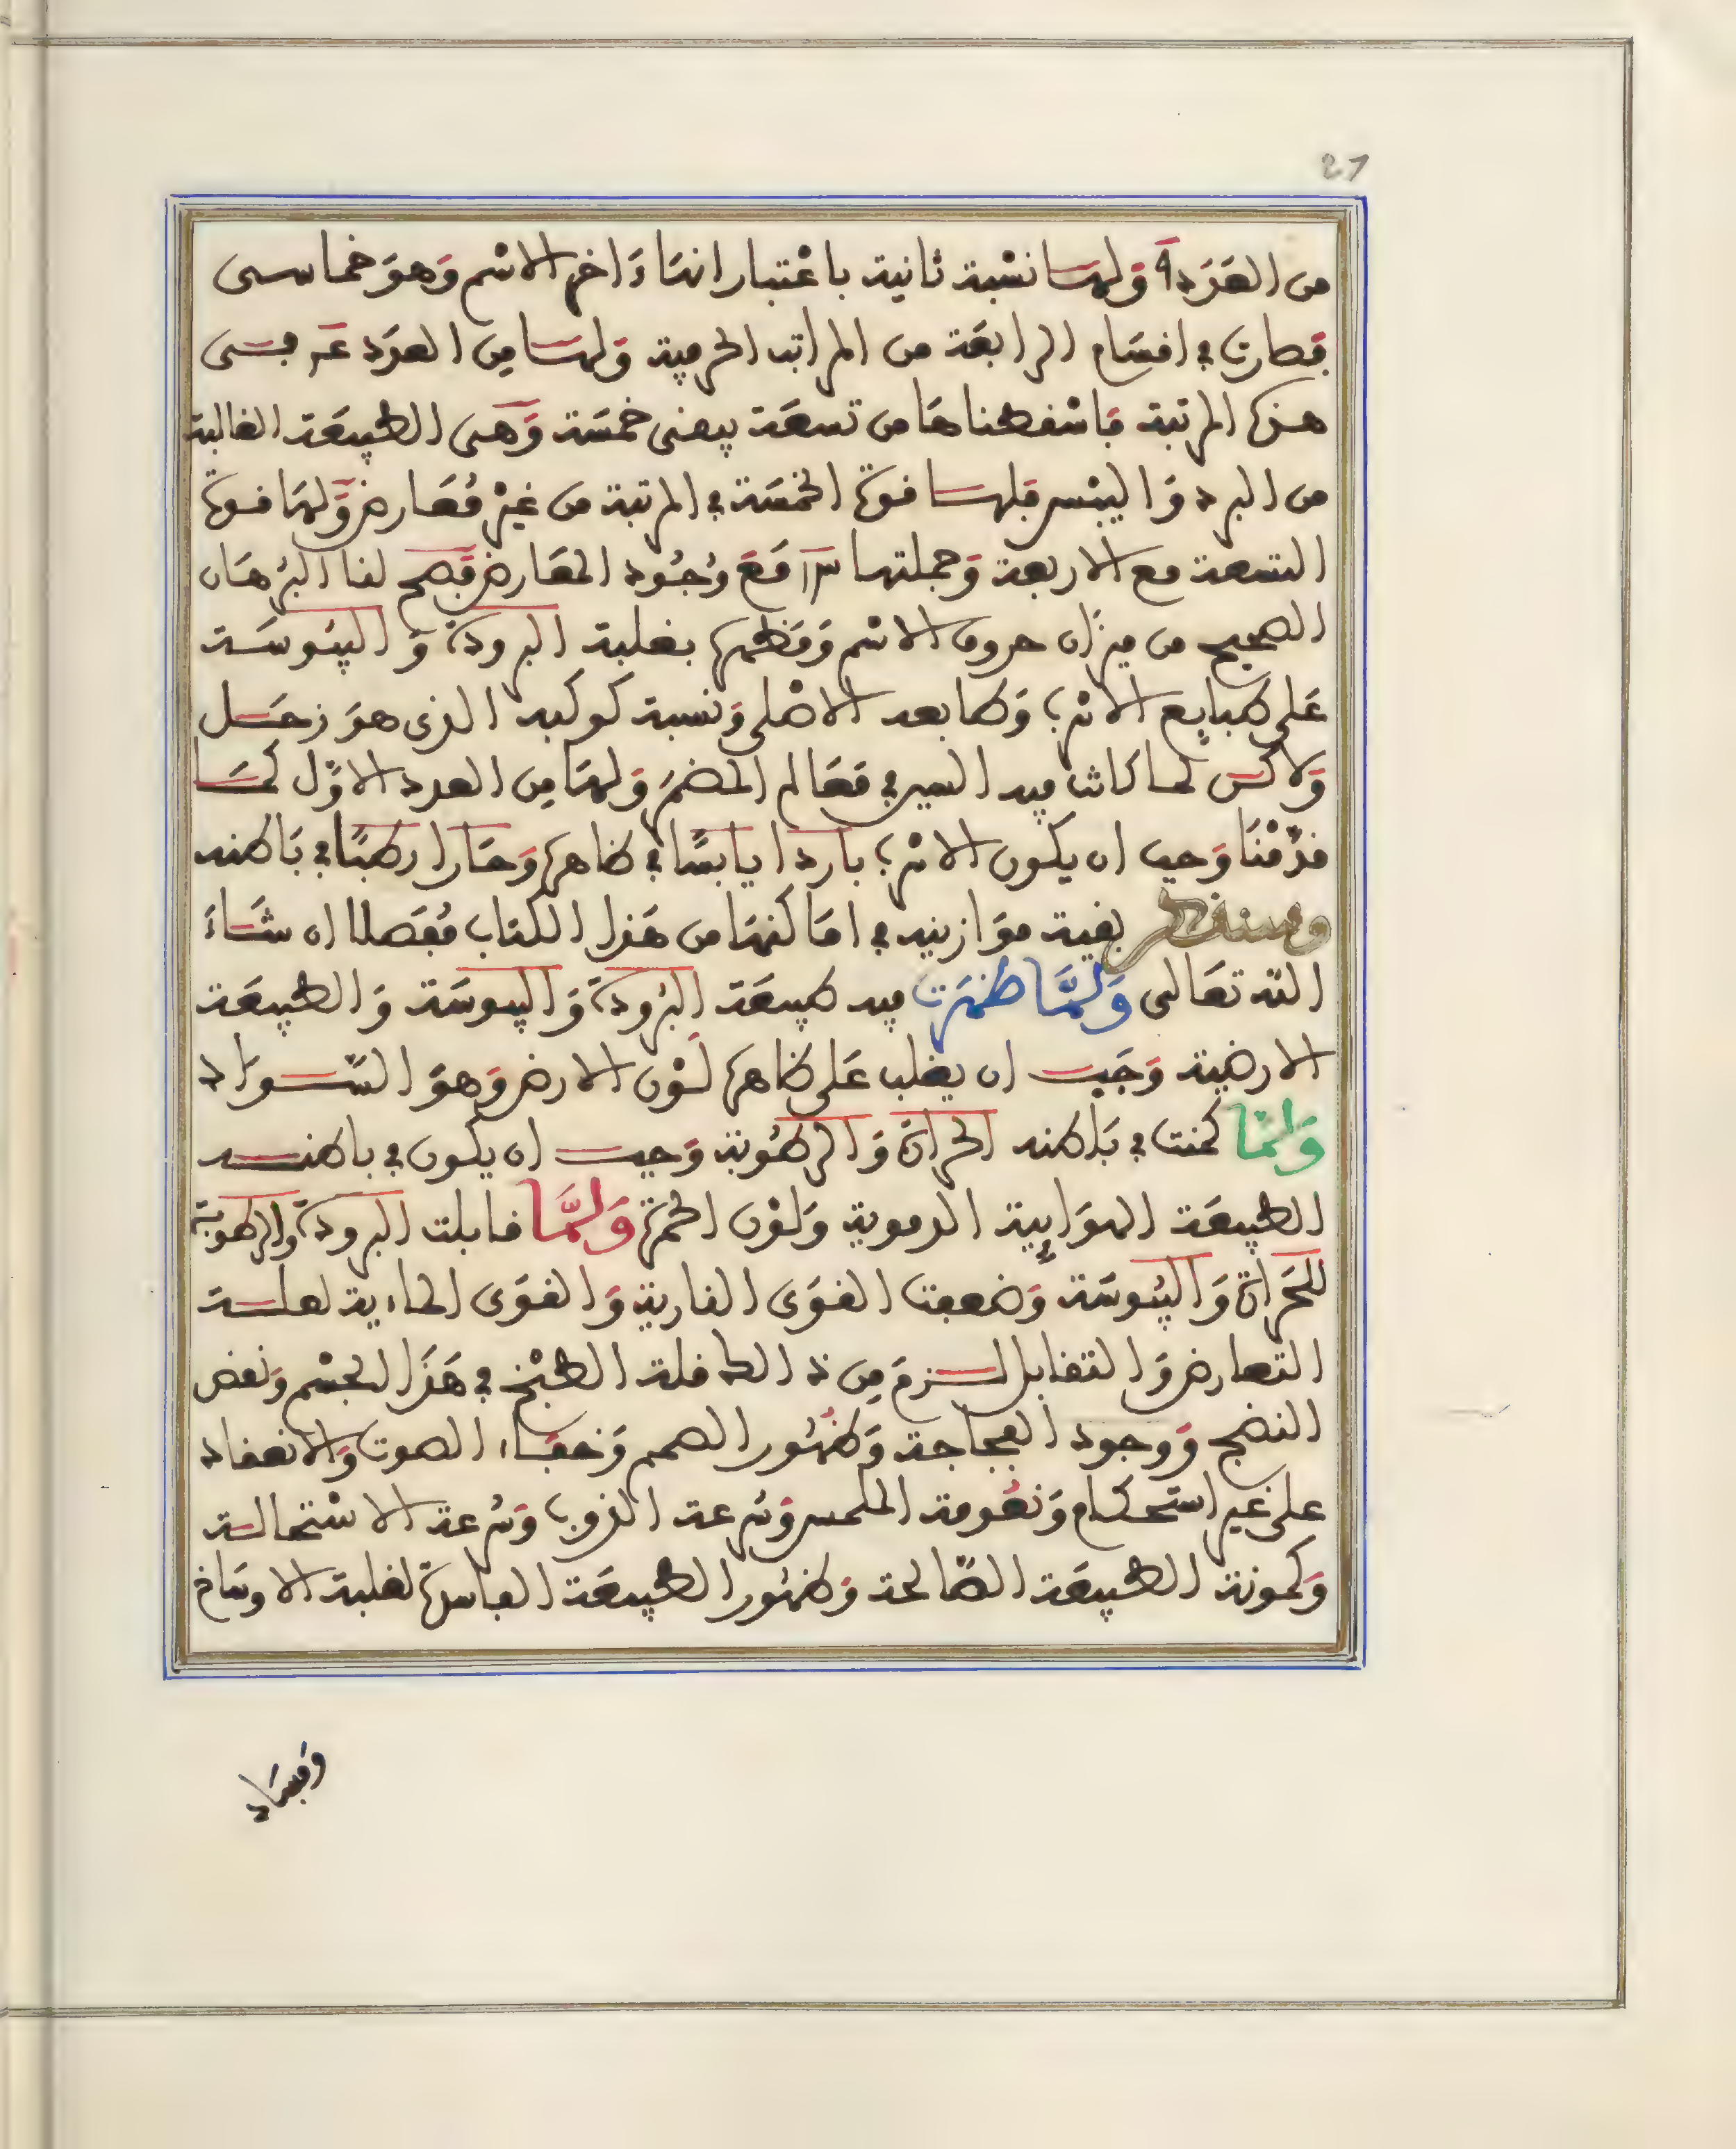 27
من العدد ٩ ولها نسبة ثانية باعتبار انهاء اخر الاسم وهو خماسى
فصارت في اقسام الرابعة من المراتب الحرفية ولها من العدد عم فسى
هذه المرتبة فاسقطناها من تسعة يبقى خمسة وهى الطبيعة الغالبة
من البرد واليبس فلها قوة الخمسة في المرتبة من غير معارض ولها قوة
التسعة مع الاربعة وجملتها مع وجود المعارض فصح لنا البرهان
الصحيح من ميزان حروف الاسم ومظهره بغلبة البرودة واليبوسة
على طبايع الاسرب وطابعه الاصلى ونسبة كوكبه الذى هو زحل
ولاكن لما كانت فيه السير في معالم المضمر ولها من العدد الاول كما
قدمنا وجب ان يكون الاسرب باردا يابسا في ظاهره وحارا رطبا في باطنه
وسنذكر بقية موازينه في اماكنها من هذا الكتاب مفصلا ان شاء
الله تعالى ولما ظهرت فيه طبيعة البرودة واليبوسة والطبيعة
الارضية وجب ان يغلب على ظاهره لون الارض وهو السواد
ولما كمنت في باطنه الحرارة والرطوبة وجب ان يكون في باطنه
الطبيعة الهوايية الدموية ولون الحمرة ولما قابلت البرودة والرطوبة
للحرارة واليبوسة وضعفت القوى النارية والقوى الحادية لعلة
التعارض والتقابل لزم من ذالك قلة الطبخ في هذا الجسم ونقص
النضج ووجود الفجاجة وظهور الصمم وخفاء الصوت والانعقاد
على غير استحكام ونعومة الملمس وسرعة الذوب وسرعة الاستحالة
وكمونة الطبيعة الصالحة وظهور الطبيعة الفاسدة لغلبة الاوساخ
وفساد